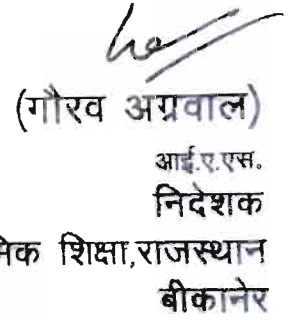 (गौरव अग्रवाल)
आई.ए.एस.
निदेशक
शिक्षा,राजस्थान
बीकानेर